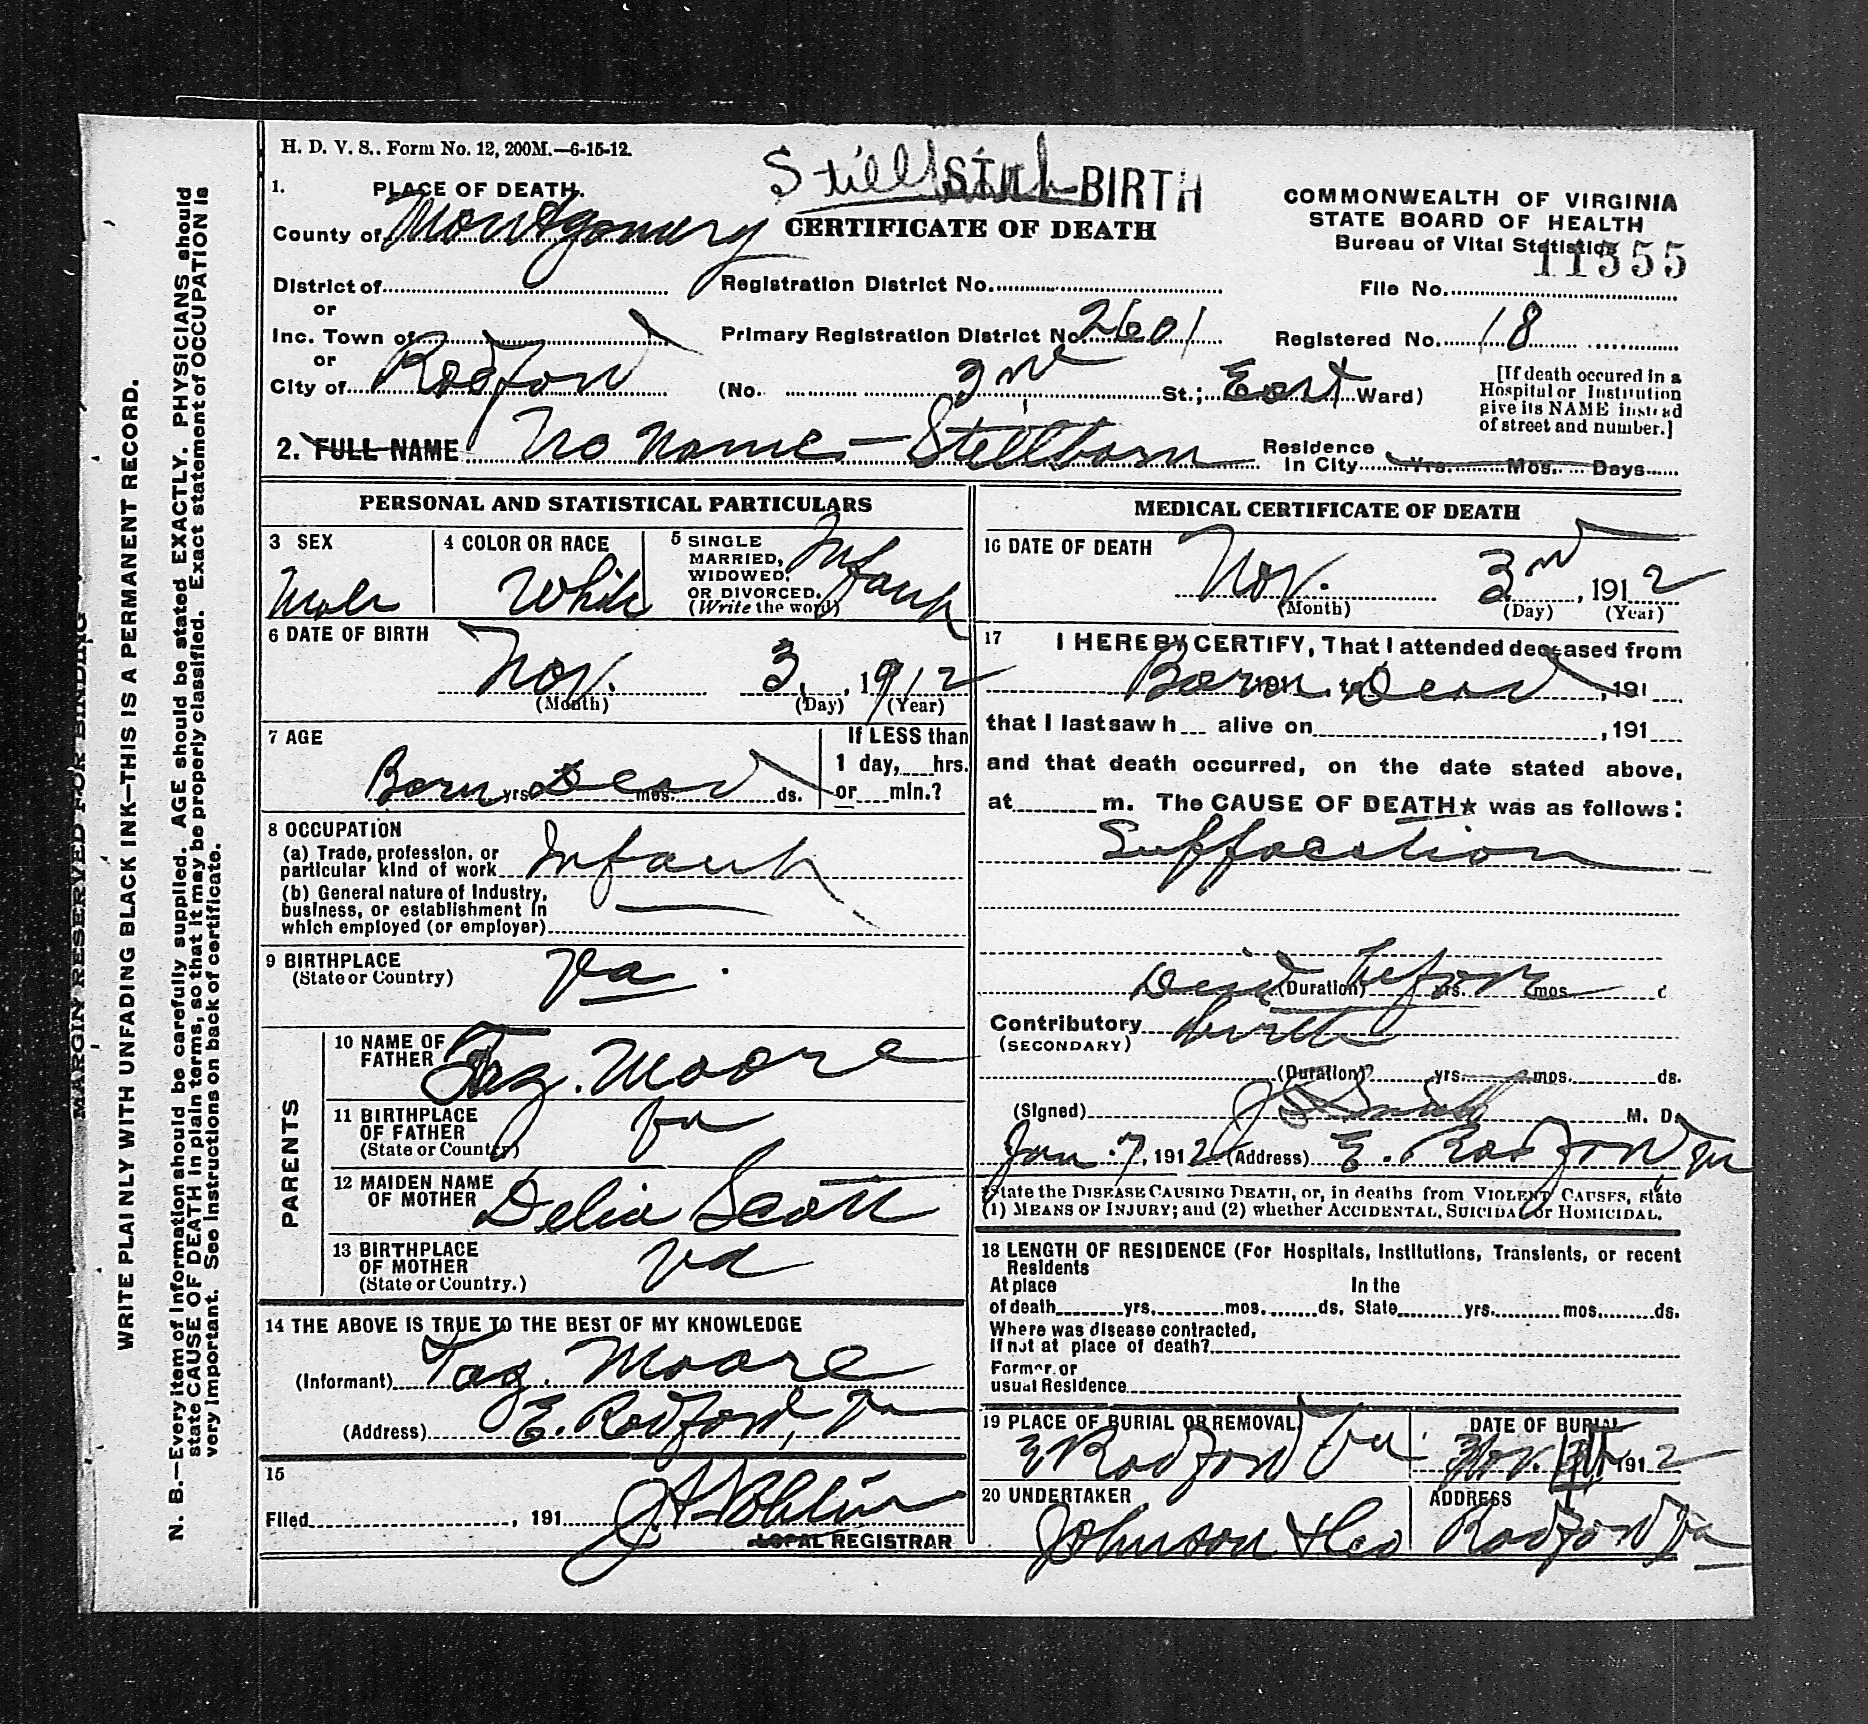 H. D. V. S.. Form No. 12, 200M.—6-15-12.
Stillbirth STILL BIRTH
1. PLACE OF DEATH.
County of Montgomery
CERTIFICATE OF DEATH
COMMONWEALTH OF VIRGINIA
STATE BOARD OF HEALTH
Bureau of Vital Statistics
11355
District of
Registration District No.
File No.
or
Inc. Town of
Primary Registration District No. 2601
Registered No. 18
or
City of Radford
(No. 3rd St.; East Ward)
[If death occured in a
Hospital or Institution
give its NAME instead
of street and number.]
2. FULL NAME No Name — Stillborn
Residence
in City Yrs. Mos. Days
PERSONAL AND STATISTICAL PARTICULARS
3 SEX
Male
4 COLOR OR RACE
White
5 SINGLE
MARRIED,
WIDOWED,
OR DIVORCED.
(Write the word)
Infant
6 DATE OF BIRTH
Nov. 3, 1912
(Month) (Day) (Year)
7 AGE
Born Dead
yrs. mos. ds.
If LESS than
1 day, hrs.
or min.?
8 OCCUPATION
(a) Trade, profession, or
particular kind of work Infant
(b) General nature of Industry,
business, or establishment in
which employed (or employer)
9 BIRTHPLACE
(State or Country)
Va.
PARENTS
10 NAME OF
FATHER Taz. Moore
11 BIRTHPLACE
OF FATHER
(State or Country)
Va
12 MAIDEN NAME
OF MOTHER Delia Scott
13 BIRTHPLACE
OF MOTHER
(State or Country.)
Va
14 THE ABOVE IS TRUE TO THE BEST OF MY KNOWLEDGE
(Informant) Taz. Moore
(Address) E. Radford, Va
15
Filed , 191
LOCAL REGISTRAR
MEDICAL CERTIFICATE OF DEATH
16 DATE OF DEATH
Nov. 3rd, 1912
(Month) (Day) (Year)
17 I HEREBY CERTIFY, That I attended deceased from
Born Dead , 191
that I last saw h alive on , 191
and that death occurred, on the date stated above,
at m. The CAUSE OF DEATH★ was as follows:
Suffocation
Died before
(Duration) yrs. mos
Contributory birth
(SECONDARY)
(Duration) yrs. mos. ds.
(Signed) M. D.
Jan. 7, 1912 (Address) E. Radford Va
State the DISEASE CAUSING DEATH, or, in deaths from VIOLENT CAUSES, state
(1) MEANS OF INJURY; and (2) whether ACCIDENTAL, SUICIDAL or HOMICIDAL.
18 LENGTH OF RESIDENCE (For Hospitals, Institutions, Transients, or recent
Residents
At place In the
of death yrs. mos. ds. State yrs. mos. ds.
Where was disease contracted,
If not at place of death?
Former or
usual Residence
19 PLACE OF BURIAL OR REMOVAL
E Radford Va
DATE OF BURIAL
Nov. 1912
20 UNDERTAKER
Johnson & Co
ADDRESS
Radford Va
MARGIN RESERVED FOR BINDING
WRITE PLAINLY WITH UNFADING BLACK INK—THIS IS A PERMANENT RECORD.
N. B.—Every item of Information should be carefully supplied. AGE should be stated EXACTLY. PHYSICIANS should
state CAUSE OF DEATH in plain terms, so that it may be properly classified. Exact statement of OCCUPATION is
very important. See instructions on back of certificate.